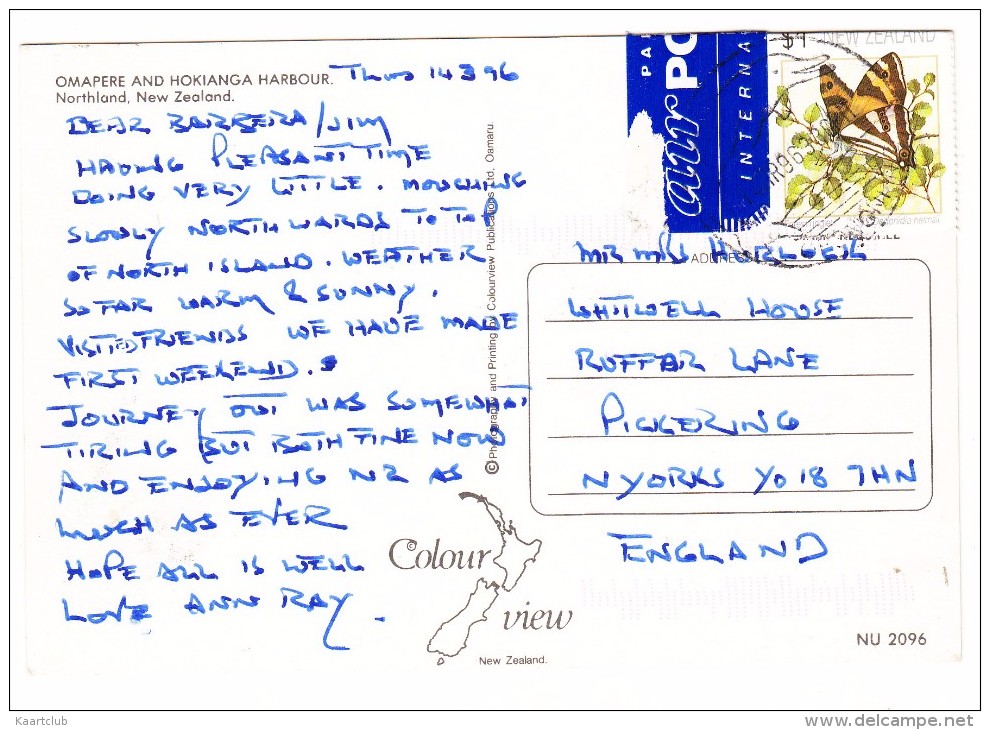 OMAPERE AND HOKIANGA HARBOUR.
Northland, New Zealand.
Thurs 14 3 96
DEAR BARBERA/JIM
HAVING PLEASANT TIME
DOING VERY LITTLE. MOOCHING
SLOWLY NORTHWARDS TO TOP
OF NORTH ISLAND. WEATHER
SO FAR WARM & SUNNY.
VISITED FRIENDS WE HAVE MADE
FIRST WEEKEND.
JOURNEY OUT WAS SOMEWHAT
TIRING BUT BOTH FINE NOW
AND ENJOYING NZ AS
MUCH AS EVER
HOPE ALL IS WELL
LOVE ANN RAY.
© Photography and Printing by Colourview Publications Ltd, Oamaru
Colour
view
New Zealand.
PA
air PO
INTERNA
$1
NEW ZEALAND
MR MRS
ADDRESS
WHITWELL HOUSE
RUFFAR LANE
PICKERING
N YORKS YO18 7HN
ENGLAND
NU 2096
Kaartclub
www.delcampe.net